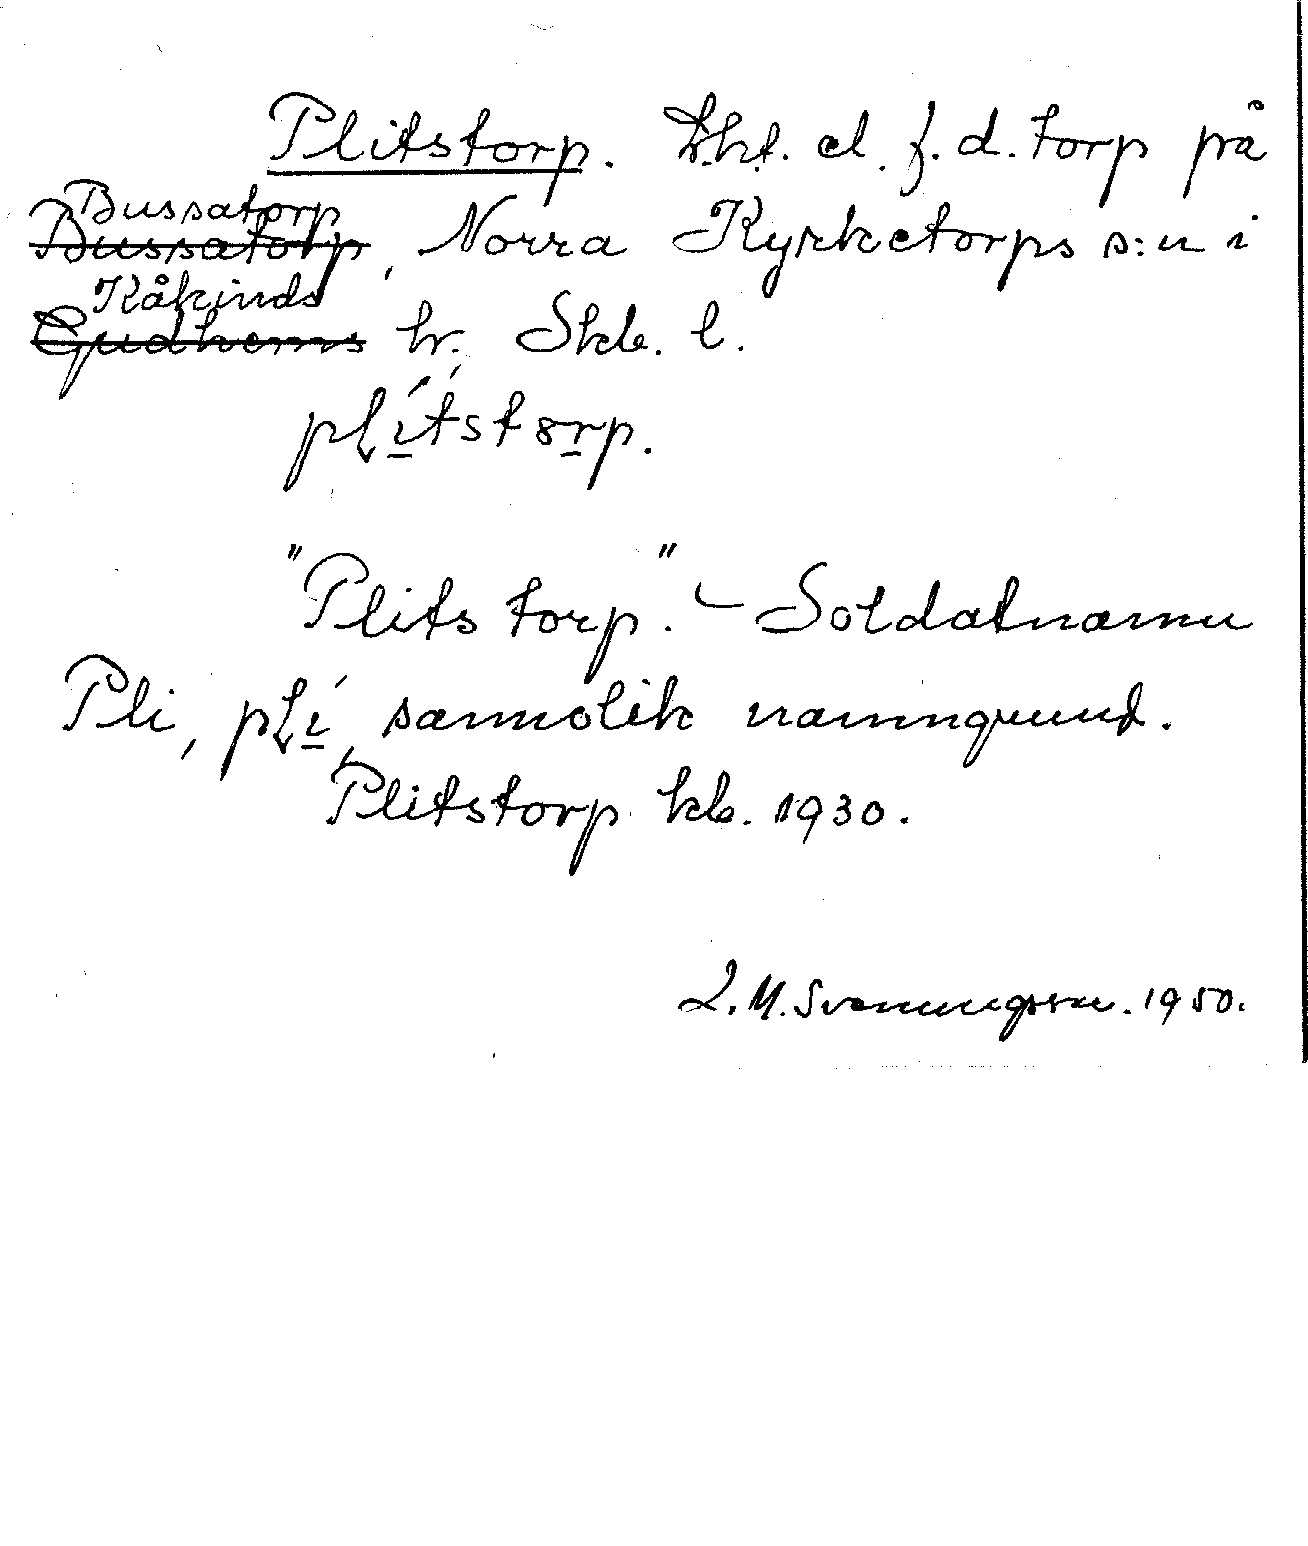 Plitstorp. Lht. el. f. d. torp på
Bussatorp
Bussatorp, Norra Kyrketorps s:n i
Kåkinds
Gudhems hr. Skb. l.
plítstørp.
"Plits torp." – Soldatnamn
Pli, plí, sannolik namngrund.
Plitstorp kb. 1930.
L. M. Svenungsson. 1950.